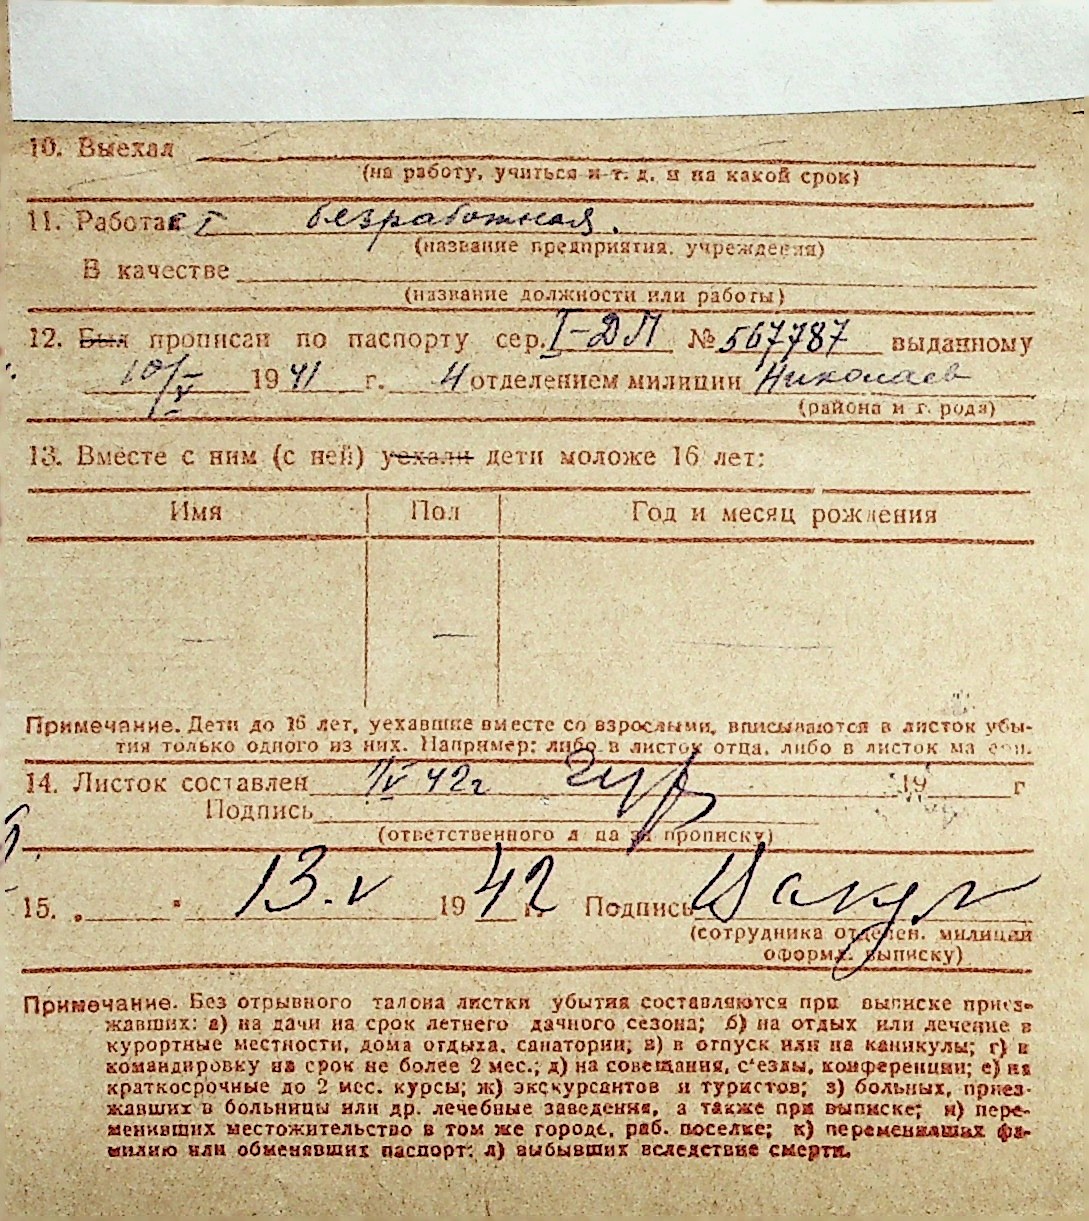 10. Выехал
(на работу, учиться и т. д. и на какой срок)
11. Работает безработная.
(название предприятия, учреждения)
В качестве
(название должности или работы)
12. Был прописан по паспорту сер. I-ДП № 567787 выданному
10/V 1941 г. 4 отделением милиции Николаев
(района и г. рода)
13. Вместе с ним (с ней) уехали дети моложе 16 лет:
Имя Пол Год и месяц рождения
— — —
Примечание. Дети до 16 лет, уехавшие вместе со взрослыми, вписываются в листок убы-
тия только одного из них. Например: либо в листок отца, либо в листок ма ери.
14. Листок составлен 42г 19 г
Подпись
(ответственного л ца за прописку)
15. „ " 13.V 1942 г. Подпись
(сотрудника отделен. милиции
оформл. выписку)
Примечание. Без отрывного талона листки убытия составляются при выписке приез-
жавших: а) на дачи на срок летнего дачного сезона; б) на отдых или лечение в
курортные местности, дома отдыха, санатории; в) в отпуск или на каникулы; г) в
командировку на срок не более 2 мес.; д) на совещания, с'езды, конференции; е) на
краткосрочные до 2 мес. курсы; ж) экскурсантов и туристов; з) больных, приез-
жавших в больницы или др. лечебные заведения, а также при выписке; и) пере-
менивших местожительство в том же городе, раб. поселке; к) переменивших фа-
милию или обменявших паспорт; л) выбывших вследствие смерти.